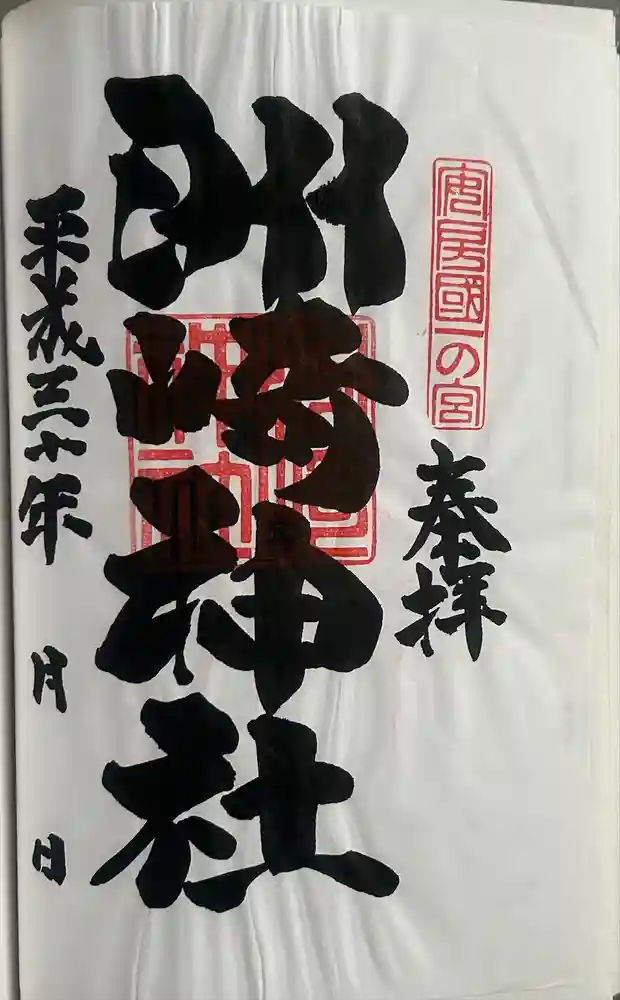 安房國一の宮
奉拝
洲崎神社
平成三十年
月
日